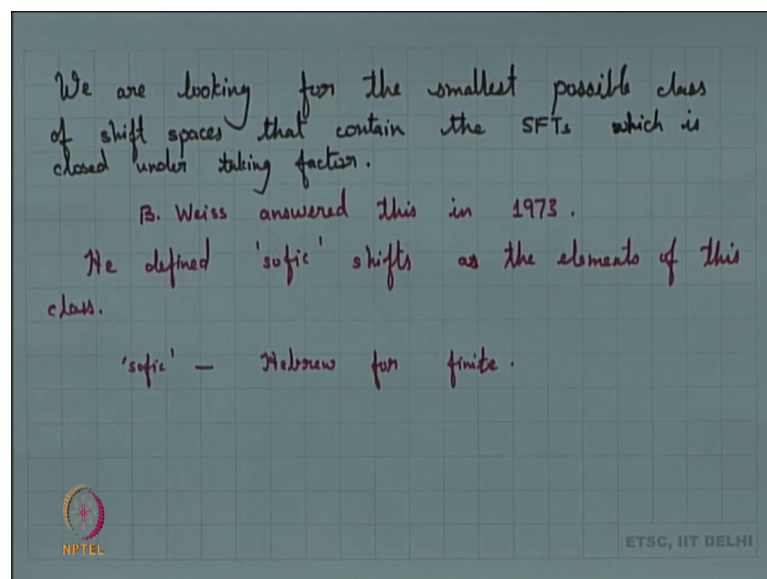 We are looking for the smallest possible class
of shift spaces that contain the SFTs which is
closed under taking factor.
B. Weiss answered this in 1973.
He defined 'sofic' shifts as the elements of this
class.
'sofic' — Hebrew for finite.
NPTEL
ETSC, IIT DELHI